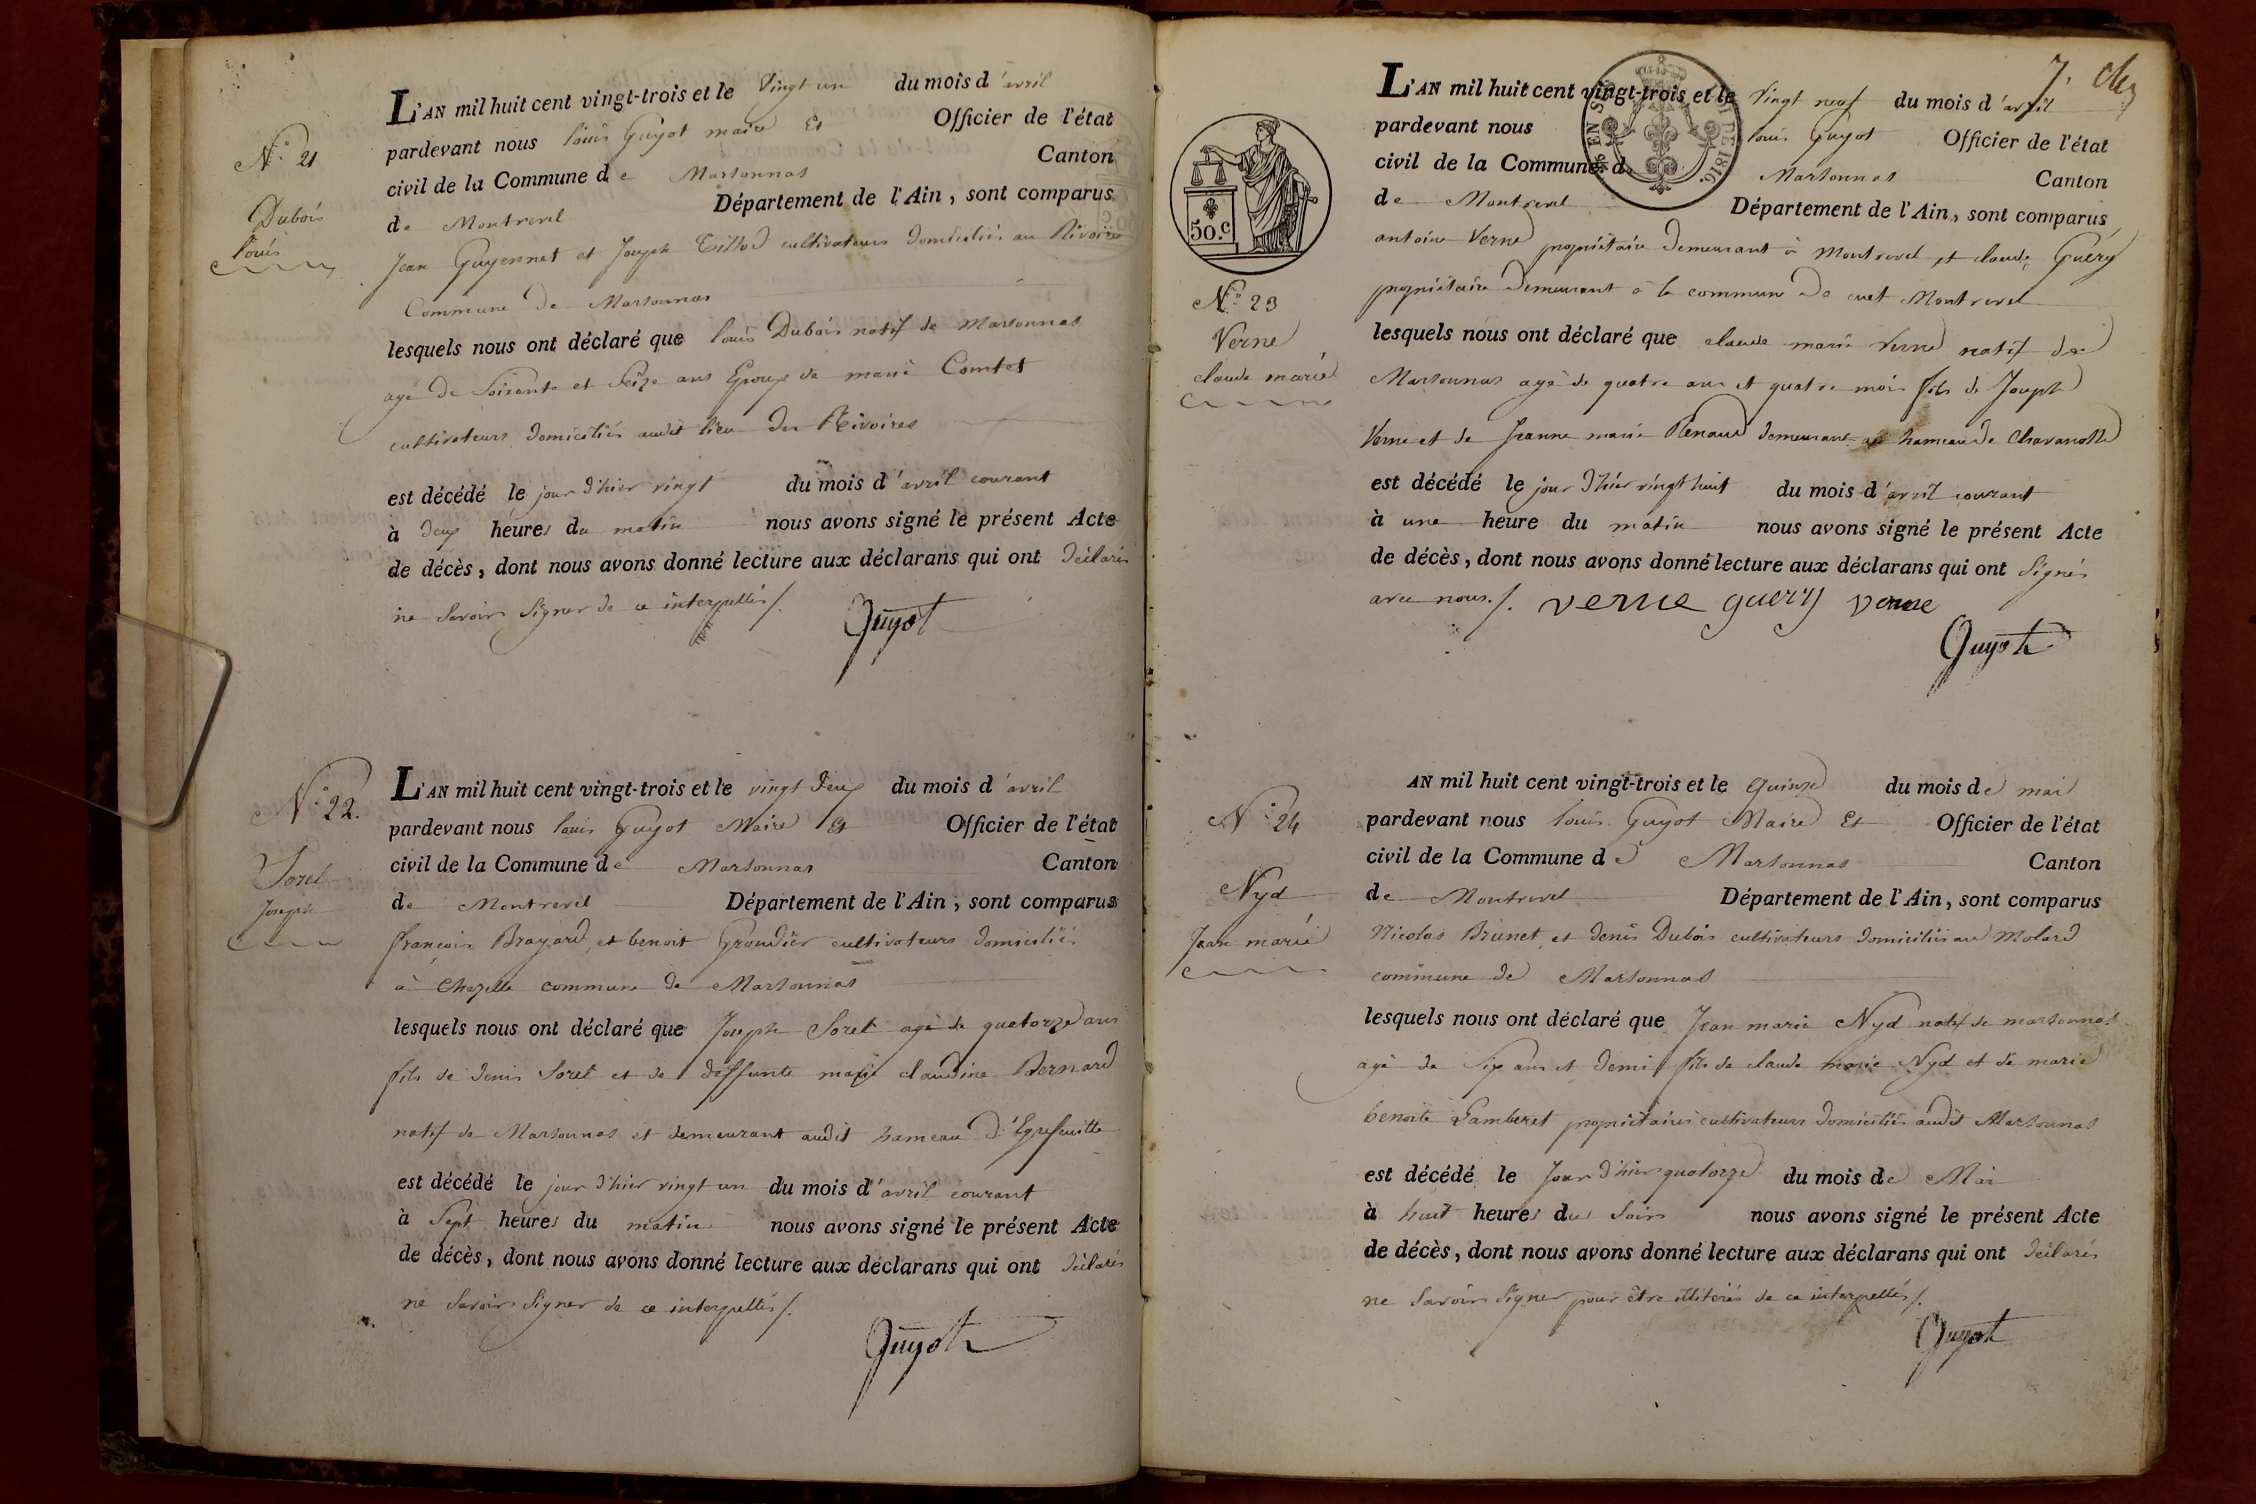 N.° 21
Dubois
louis
L'AN mil huit cent vingt-trois et le vingt un du mois d'avril
pardevant nous louis Guyot maire Et Officier de l'état
civil de la Commune de Marsonnas Canton
de Montrevel Département de l'Ain, sont comparus
Jean Guyennet et Joseph Tillod cultivateurs domiciliés au Rivoire
Commune de Marsonnas
lesquels nous ont déclaré que louis Dubois natif de Marsonnas
agé de Soixante et Seize ans Epoux de marie Comtet
cultivateurs domiciliés audit lieu des Rivoires
est décédé le jour d'hier vingt du mois d'avril courant
à deux heures du matin nous avons signé le présent Acte
de décès, dont nous avons donné lecture aux déclarans qui ont déclarés
ne Savoir Signer de ce interpellés/.
Guyot
N.° 22.
Sorel
Joseph
L'AN mil huit cent vingt-trois et le vingt deux du mois d'avril
pardevant nous louis Guyot Maire Et Officier de l'état
civil de la Commune de Marsonnas Canton
de Montrevel Département de l'Ain, sont comparus
françois Brayard et benoit Groudier cultivateurs domiciliés
à Chazelle commune de Marsonnas
lesquels nous ont déclaré que Joseph Soret agé de quatorze ans
fils de denis Soret et de deffunte marie claudine Bernard
natif de Marsonnas et demeurant audit hameau d'Egrefeuille
est décédé le jour d'hier vingt un du mois d'avril courant
à Sept heures du matin nous avons signé le présent Acte
de décès, dont nous avons donné lecture aux déclarans qui ont déclarés
ne Savoir Signer de ce interpellés/.
Guyot
7.
50.c
EN S
DE 1816.
N.° 23
Verne
claude marie
L'AN mil huit cent vingt-trois et le vingt neuf du mois d'avril
pardevant nous louis Guyot Officier de l'état
civil de la Commune de Marsonnas Canton
de Montrevel Département de l'Ain, sont comparus
antoine Verne propriétaire demeurant à Montrevel et claude Guéry
propriétaire demeurant à la commune de cuet Montrevel
lesquels nous ont déclaré que claude marie Verne natif de
Marsonnas agé de quatre ans et quatre mois fils de Joseph
Verne et de Jeanne marie Renaud demeurant au hameau de Chavanotte
est décédé le jour d'hier vingt huit du mois d'avril courant
à une heure du matin nous avons signé le présent Acte
de décès, dont nous avons donné lecture aux déclarans qui ont Signés
avec nous./. verne guery verne
Guyot
N.° 24
Nyd
Jean marie
AN mil huit cent vingt-trois et le Quinze du mois de mai
pardevant nous louis Guyot Maire Et Officier de l'état
civil de la Commune de Marsonnas Canton
de Montrevel Département de l'Ain, sont comparus
Nicolas Brunet et denis Dubois cultivateurs domiciliés au Molard
commune de Marsonnas
lesquels nous ont déclaré que Jean marie Nyd natif de marsonnas
agé de Six ans et demi fils de claude marie Nyd et de marie
benoite Gamberet propriétaires cultivateurs domiciliés audit Marsonnas
est décédé le Jour d'hier quatorze du mois de Mai
à huit heures du Soir nous avons signé le présent Acte
de décès, dont nous avons donné lecture aux déclarans qui ont déclarés
ne Savoir Signer pour être illiterés de ce interpellés/.
Guyot